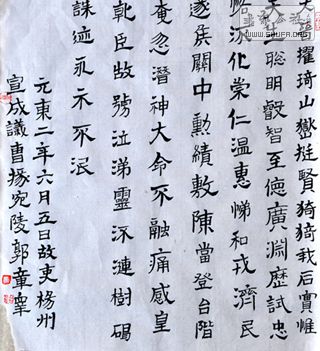 擢琦山嶽挺賢猗猗我后實惟
聰明叡智至德廣淵歷試忠
化崇仁溫惠悌和戎濟民
遂矦關中勳績敷陳當登台階
奄忽潛神大命不融痛感皇
臣故號泣涕靈漣樹碣
迹永示不泯
元東二年六月五日故吏楊州
宣成議曹掾宛陵郭